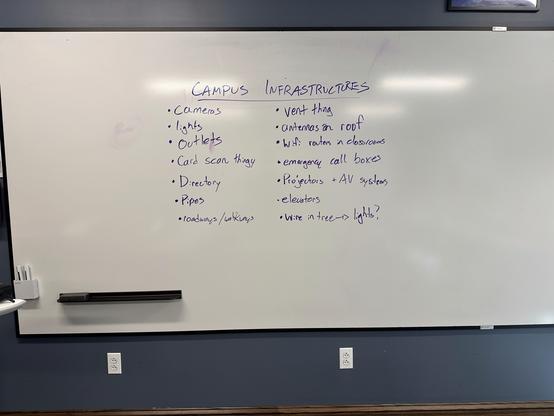 CAMPUS INFRASTRUCTURES
• Cameras
• lights
• Outlets
• Card scan thingy
• Directory
• Pipes
• roadways/walkways
• vent thing
• antennas on roof
• Wifi routers in classrooms
• emergency call boxes
• Projectors + AV systems
• elevators
• Wire in tree → lights?